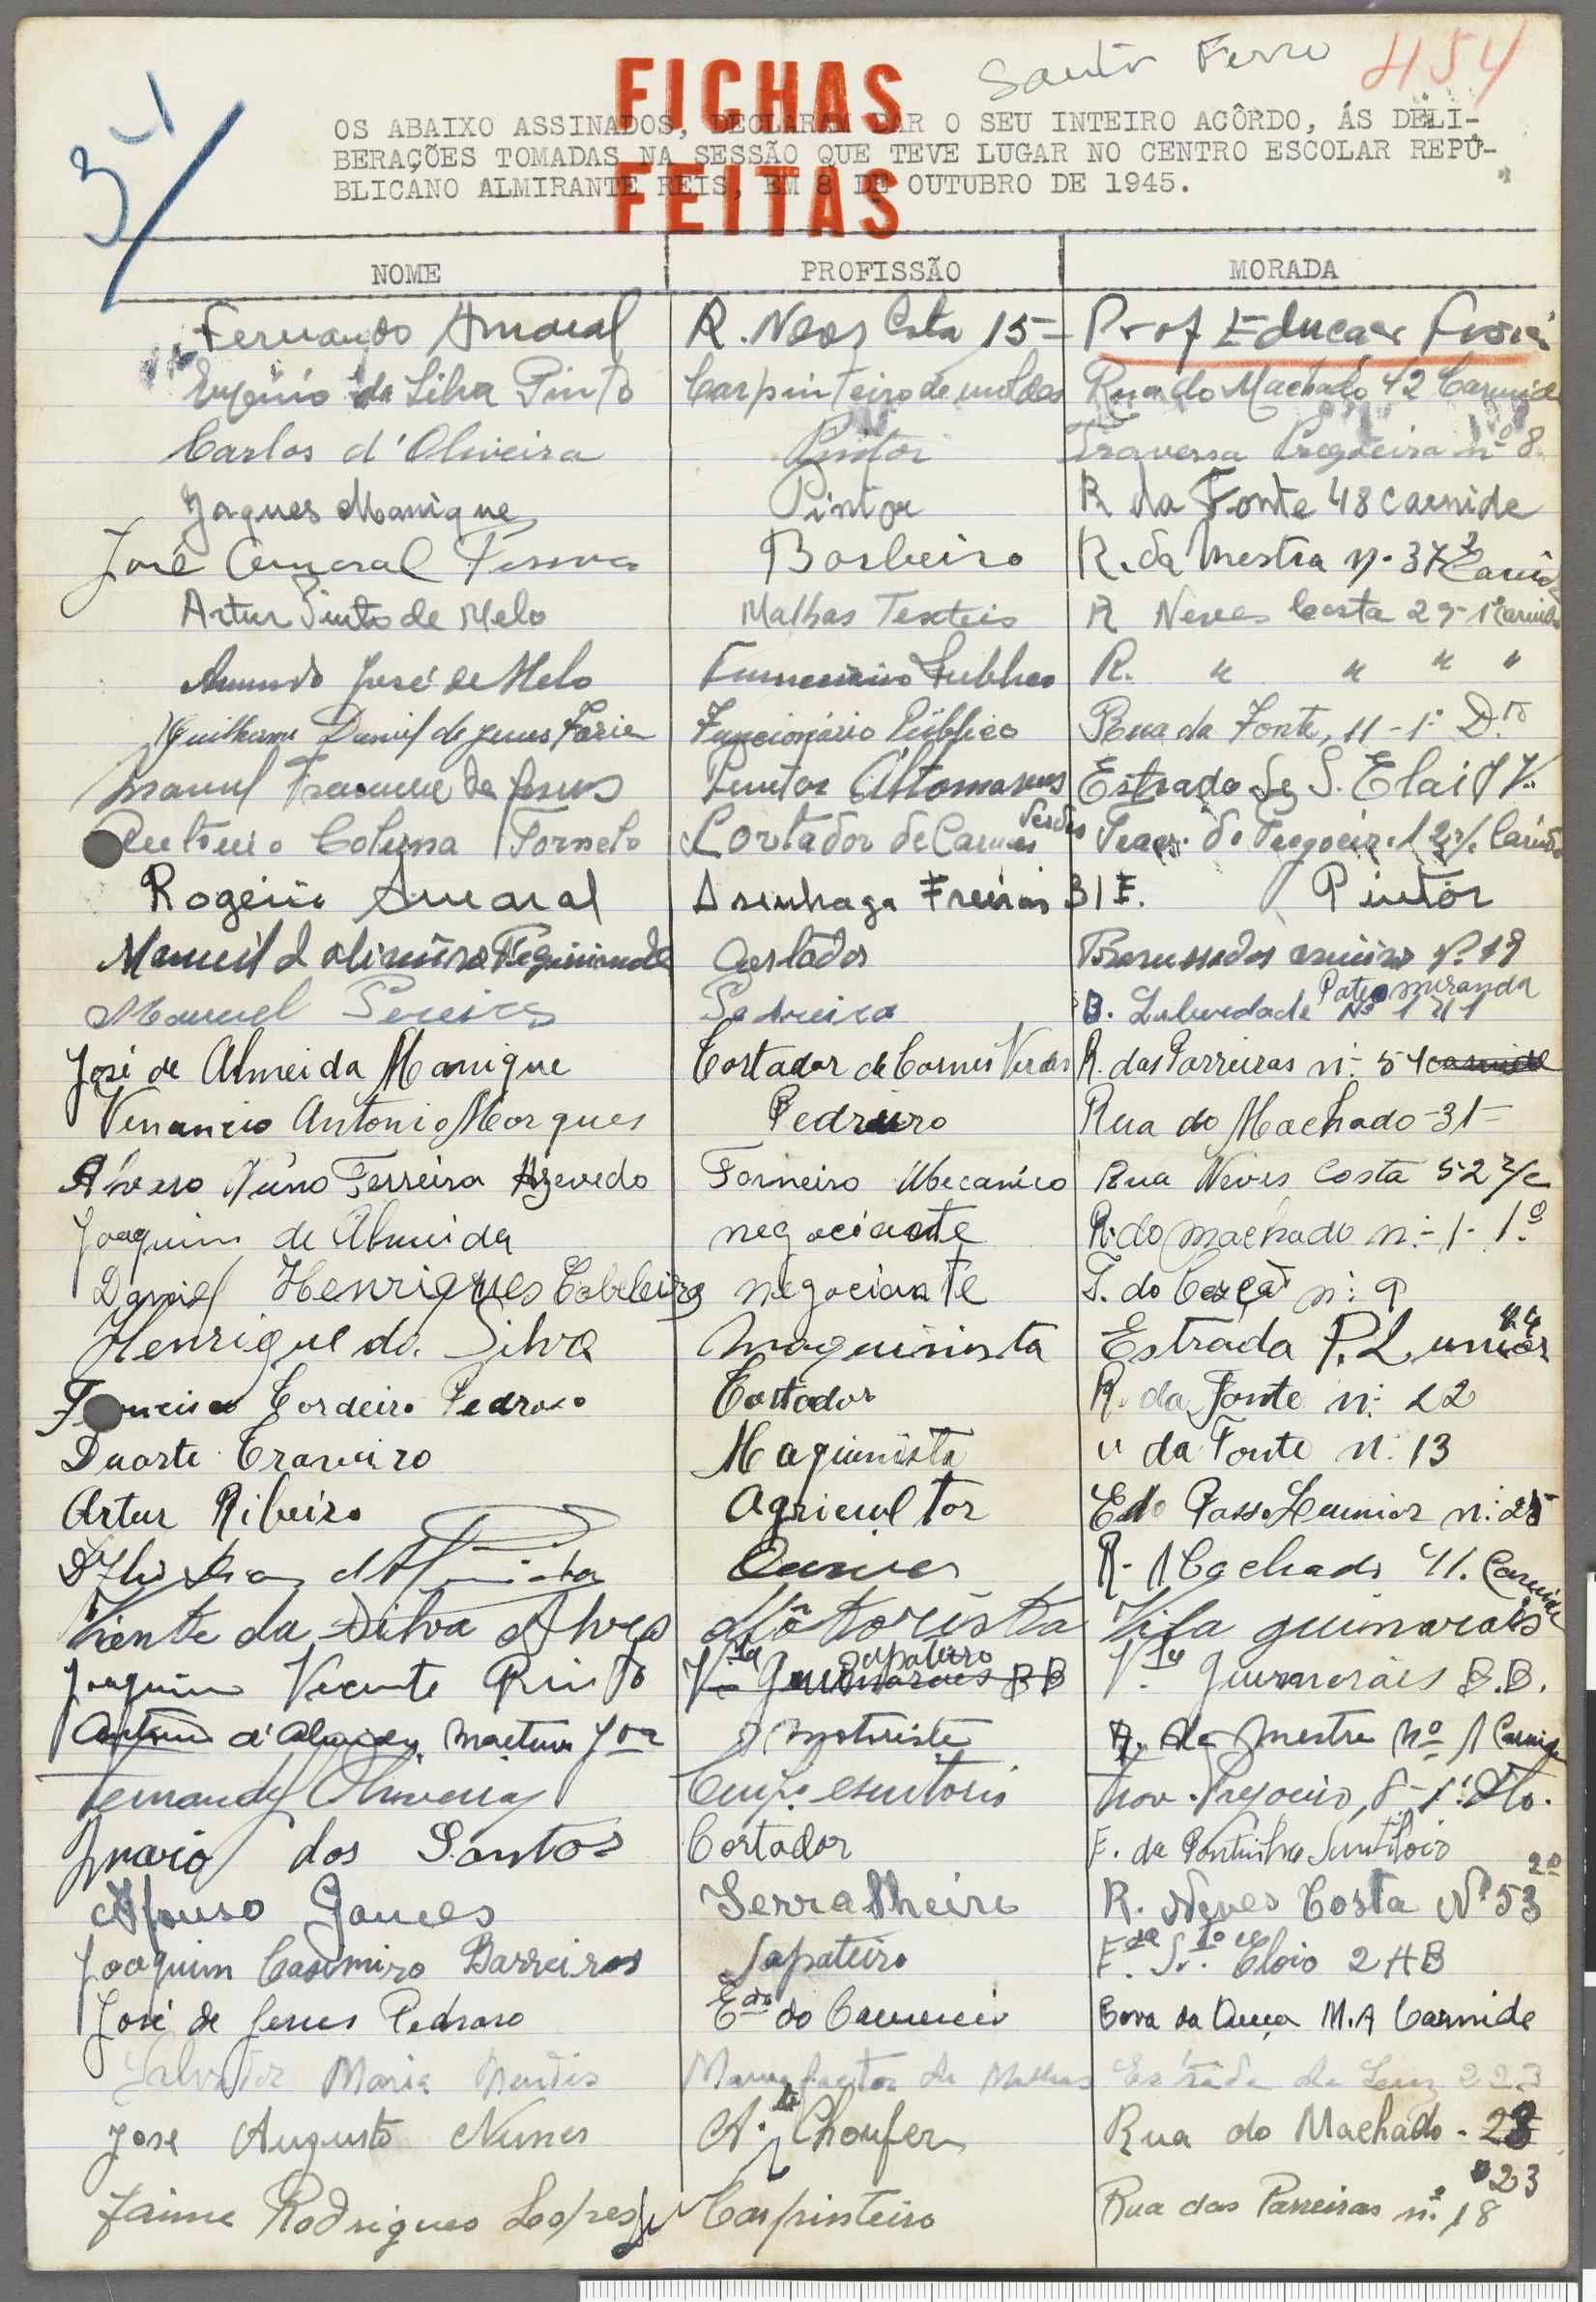 454
34
FICHAS
FEITAS
OS ABAIXO ASSINADOS, DECLARAM DAR O SEU INTEIRO ACÔRDO, ÁS DELI-
BERAÇÕES TOMADAS NA SESSÃO QUE TEVE LUGAR NO CENTRO ESCOLAR REPÚ-
BLICANO ALMIRANTE REIS, EM 8 DE OUTUBRO DE 1945.
NOME PROFISSÃO MORADA
Fernando Amaral R. Neves Costa 15 Prof
Eugénio da Silva Pinto Carpinteiro de moldes Rua do Machado 42 Carnide
Carlos d'Oliveira Pintor Travessa Pregoeiro nº 8
Jaques Manique Pintor R da Fonte 48 Carnide
José Amaral Barbeiro R. da Mestra n. 37
Artur Pinto de Melo Malhas Texteis R Neves Costa 29-1º Carnide
José de Melo Funcionário Publico R. " " " "
Guilherme Daniel de Jesus Faria Funcionário Público Rua da Fonte, 11-1º Dto
Manuel de Jesus Pintor Estrada de S.
Antonio Coluna Cortador de Carnes Verdes
Rogério Amaral Azinhaga Freiras 31 F. Pintor
Manuel Cortador nº 19
Manuel Pereira Pedreiro Liberdade Pateo Miranda Nº
José de Almeida Manique Cortador de Carnes Verdes R. das Parreiras n. 54 Carnide
Venancio Antonio Marques Pedreiro Rua do Machado-31-
Alvaro Nuno Ferreira Azevedo Torneiro Mecanico Rua Neves Costa 52 r/c
Joaquim de Almeida negociante R. do machado n.- 1- 1.º
Daniel Henriques negociante T. do n: 9
Henrique da Silva Maquinista Estrada P. L.
Francisco Cordeiro Pedroso Cortador R. da Fonte n: 22
Duarte Craveiro Maquinista " da Fonte n: 13
Artur Ribeiro Agricultor n: 25
Ourives R. Machado 41. Carnide
Vicente da Silva Alves Môtorista Vila guimarais
Joaquim Vicente Pinto Sapateiro Vla Guimarães BB Vla Guimarães B.B.
d'Almeida Martins Jor motorista R. da mestra nº 1 Carnide
Oliveira Emp. escritorio Trav. Pregoeiro, 8-1º
Mario dos Santos Cortador E. da Pontinha
Afonso Gomes Serralheiro R. Neves Costa Nº 53 2º
Joaquim Casimiro Barreiros Sapateiro 2 HB
José de Jesus Pedroso Edo do Comercio Cova da Onça M.A Carnide
Salvador Maria Mendes de Malhas Estrada da Luz 223
Jose Augusto Nunes Choufer Rua do Machado - 23
23
Jaime Rodrigues Lopes Carpinteiro Rua das Parreiras nº 18